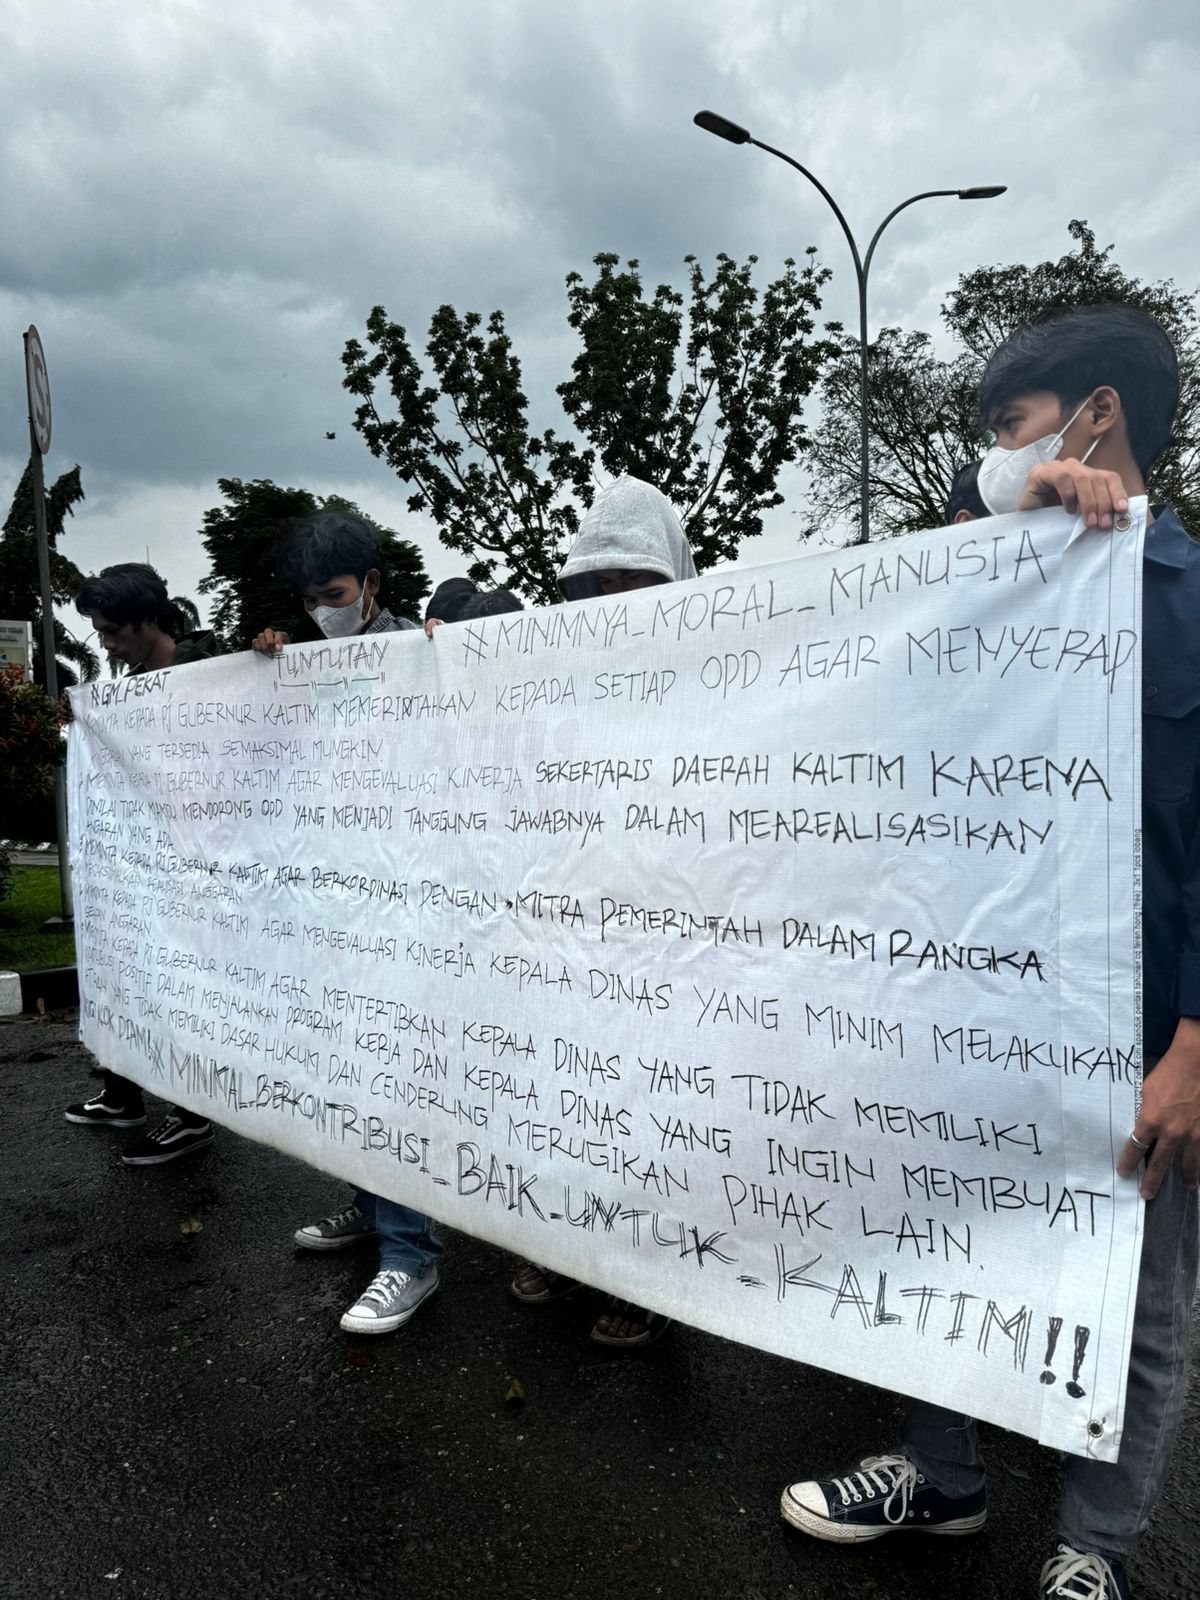 #GM_PEKAT
TUNTUTAN
#MINIMNYA_MORAL_MANUSIA
KEPADA PJ GUBERNUR KALTIM MEMERINTAHKAN KEPADA SETIAP OPD AGAR MENYERAP
YANG TERSEDIA SEMAKSIMAL MUNGKIN
MEMINTA KEPADA PJ GUBERNUR KALTIM AGAR MENGEVALUASI KINERJA SEKERTARIS DAERAH KALTIM KARENA
DINILAI TIDAK MAMPU MENDORONG OPD YANG MENJADI TANGGUNG JAWABNYA DALAM MEAREALISASIKAN
ANGARAN YANG ADA
3. MEMINTA KEPADA PJ GUBERNUR KALTIM AGAR BERKORDINASI DENGAN MITRA PEMERINTAH DALAM RANGKA
REALISASI ANGGARAN
MEMINTA KEPADA PJ GUBERNUR KALTIM AGAR MENGEVALUASI KINERJA KEPALA DINAS YANG MINIM MELAKUKAN
ANGGARAN
KEPADA PJ GUBERNUR KALTIM AGAR MENTERTIBKAN KEPALA DINAS YANG TIDAK MEMILIKI
POSITIF DALAM MENJALANKAN PROGRAM KERJA DAN KEPALA DINAS YANG INGIN MEMBUAT
YANG TIDAK MEMILIKI DASAR HUKUM DAN CENDERUNG MERUGIKAN PIHAK LAIN.
KOK DIAM!
#MINIMAL_BERKONTRIBUSI_BAIK_UNTUK_KALTIM!!